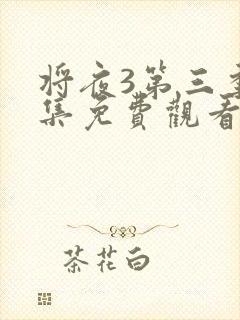 将夜3第三季
集免費觀看
茶花白